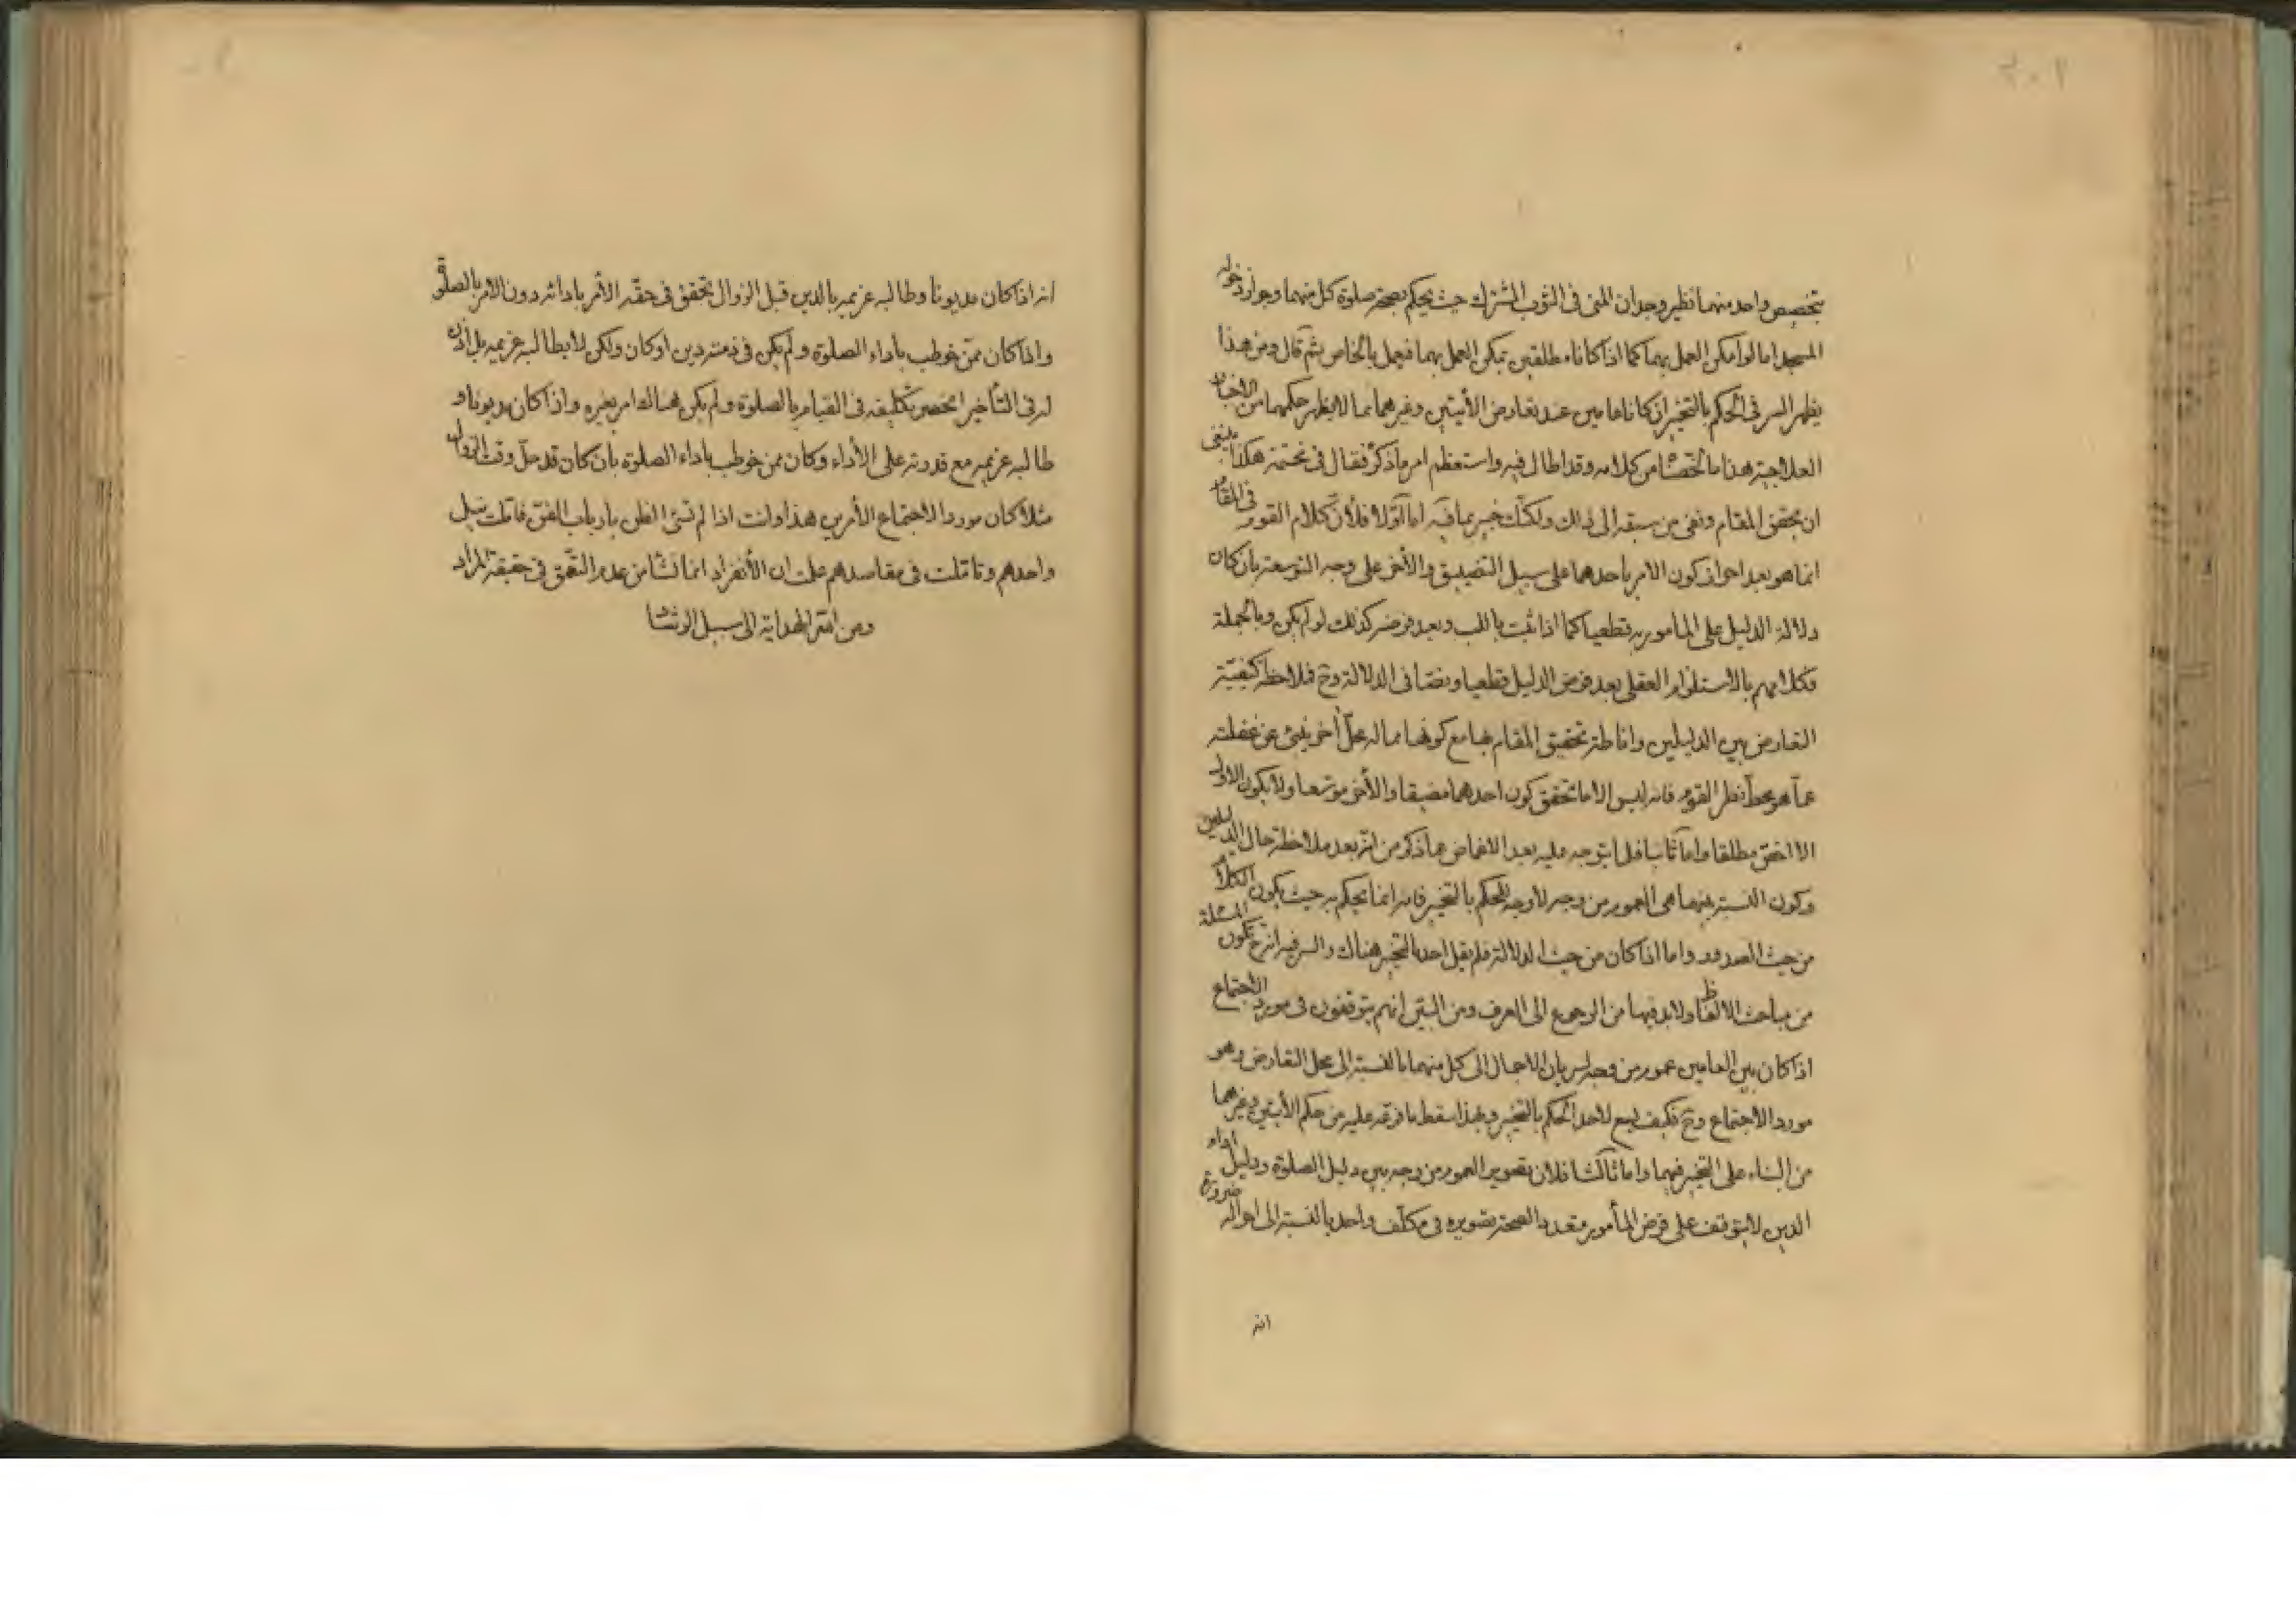 بتخصيص واحد منهما نظير وجدان المنى فى الثوب المشترك حيث يحكم بصحة صلوة كل منهما وجواز دخوله
المسجد اما لو امكن العمل بهما كما اذا كانا مطلقين يمكن العمل بهما فيعمل بالخاص ثم قال ومن هذا
يظهر السر فى الحكم بالتخيير ان كانا عامين عند تعارض الأيتين وغيرهما مما لا يظهر حكمهما من الاخبار
العلاجية هذا ما لخصنا من كلامه وقد اطال فيه واستعظم امر ما ذكر فقال فى هكذا ينبغى
ان يحقق المقام ونفى من سبقه الى ذلك ولكنك خبير بما فيه اما اولا فلأن كلام القوم فى المقام
انما هو بعد احراز كون الامر باحدهما على سبيل التضييق والأخر على وجه التوسعة بان كان
دلالة الدليل على المأمور به قطعيا كما اذا ثبت باللب وبعد فرضه كذلك لو لم يكن وبالجملة
فكلامهم بالاستلزام العقلى بعد فرض الدليل قطعيا ونصا فى الدلالة وح فملاحظة كيفية
التعارض بين الدليلين واناطة تحقيق المقام بها مع كونها مما له محل أخر ينبئ عن غفلته
عما هو محط نظر القوم فانه ليس الا ما تحقق كون احدهما مضيقا والأخر موسعا ولا يكون الاول
الا اخص مطلقا واما ثانيا فلما يتوجه عليه بعد الاغماض عما ذكر من انه بعد ملاحظة حال الدليلين
وكون النسبة بينهما هى العموم من وجه لا وجه للحكم بالتخيير فانه انما يحكم به حيث يكون الكلام
من حيث الصدور واما اذا كان من حيث الدلالة فلم يقل احد بالتخيير هناك والسر فيه انه ح تكون المسئلة
من مباحث الالفاظ ولا بد فيها من الرجوع الى العرف ومن البين انهم يتوقفون فى مورد الاجتماع
اذا كان بين العامين عموم من وجه لسريان الاجمال الى كل منهما بالنسبة الى محل التعارض وهو
مورد الاجتماع وح فكيف يسع لاحد الحكم بالتخيير وبهذا سقط ما فرعه عليه من حكم الأيتين وغيرهما
من البناء على التخيير فيهما واما ثالثا فلان تصوير العموم من وجه بين دليل الصلوة ودليل اداء
الدين لا يتوقف على فرض المأمور متعددا لصحة تصويره فى مكلف واحد بالنسبة الى احواله ضرورة
انه
انه اذا كان مديونا وطالبه غريمه بالدين قبل الزوال تحقق فى حقه الأمر بادائه دون الامر بالصلوة
واذا كان ممن خوطب بأداء الصلوة ولم يكن فى ذمته دين او كان ولكن لا يطالبه غريمه بل أذن
له فى التأخير انحصر تكليفه فى القيام بالصلوة ولم يكن هناك امر بغيره واذا كان مديونا و
طالبه غريمه مع قدرته على الأداء وكان ممن خوطب باداء الصلوة بأن كان قد دخل وقت الزوال
مثلا كان موردا لاجتماع الأمرين هذا وانت اذا لم تسئ الظن بارباب الفن فأملت نيل
واحدهم وتاملت فى مقاصدهم علمت ان الأنفراد انما نشأ من عدم التعمق فى حقيقة المراد
ومن الله الهداية الى سبيل الرشاد